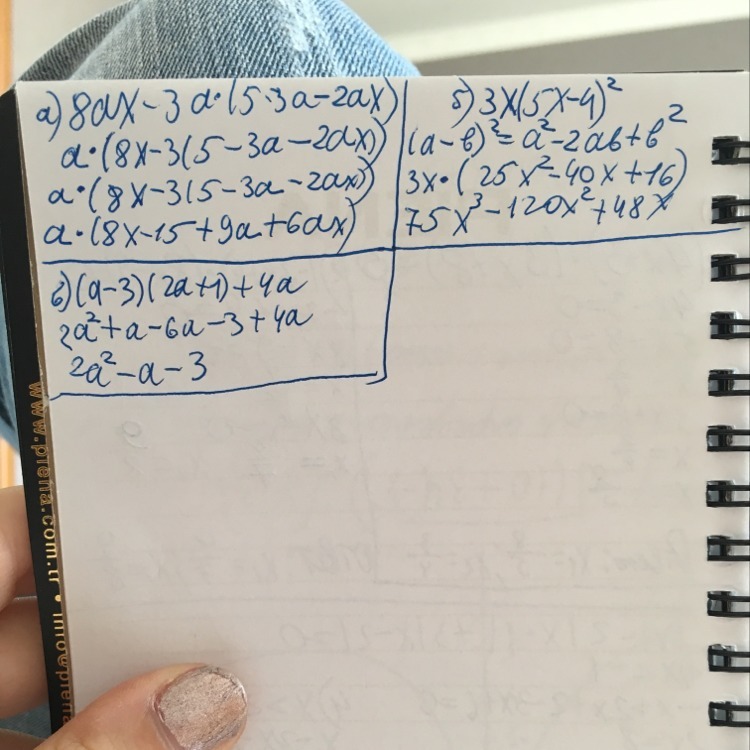 а) 8ax - 3a·(5·3a - 2ax)
a·(8x - 3(5 - 3a - 2ax))
a·(8x - 3(5 - 3a - 2ax))
a·(8x - 15 + 9a + 6ax)
б) 3x(5x-4)²
(a-b)² = a² - 2ab + b²
3x·(25x² - 40x + 16)
75x³ - 120x² + 48x
в) (a-3)(2a+1) + 4a
2a² + a - 6a - 3 + 4a
2a² - a - 3
www.piena.com.tr • info@piena